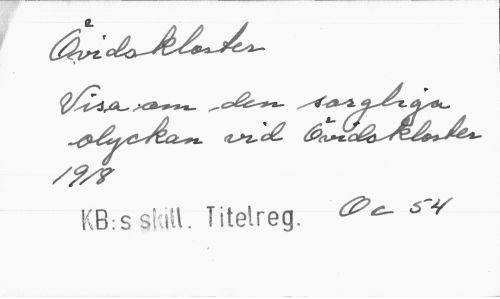 Övidskloster
Visa om den sorgliga
olyckan vid Övidskloster
1918
KB:s skill. Titelreg. Oc 54